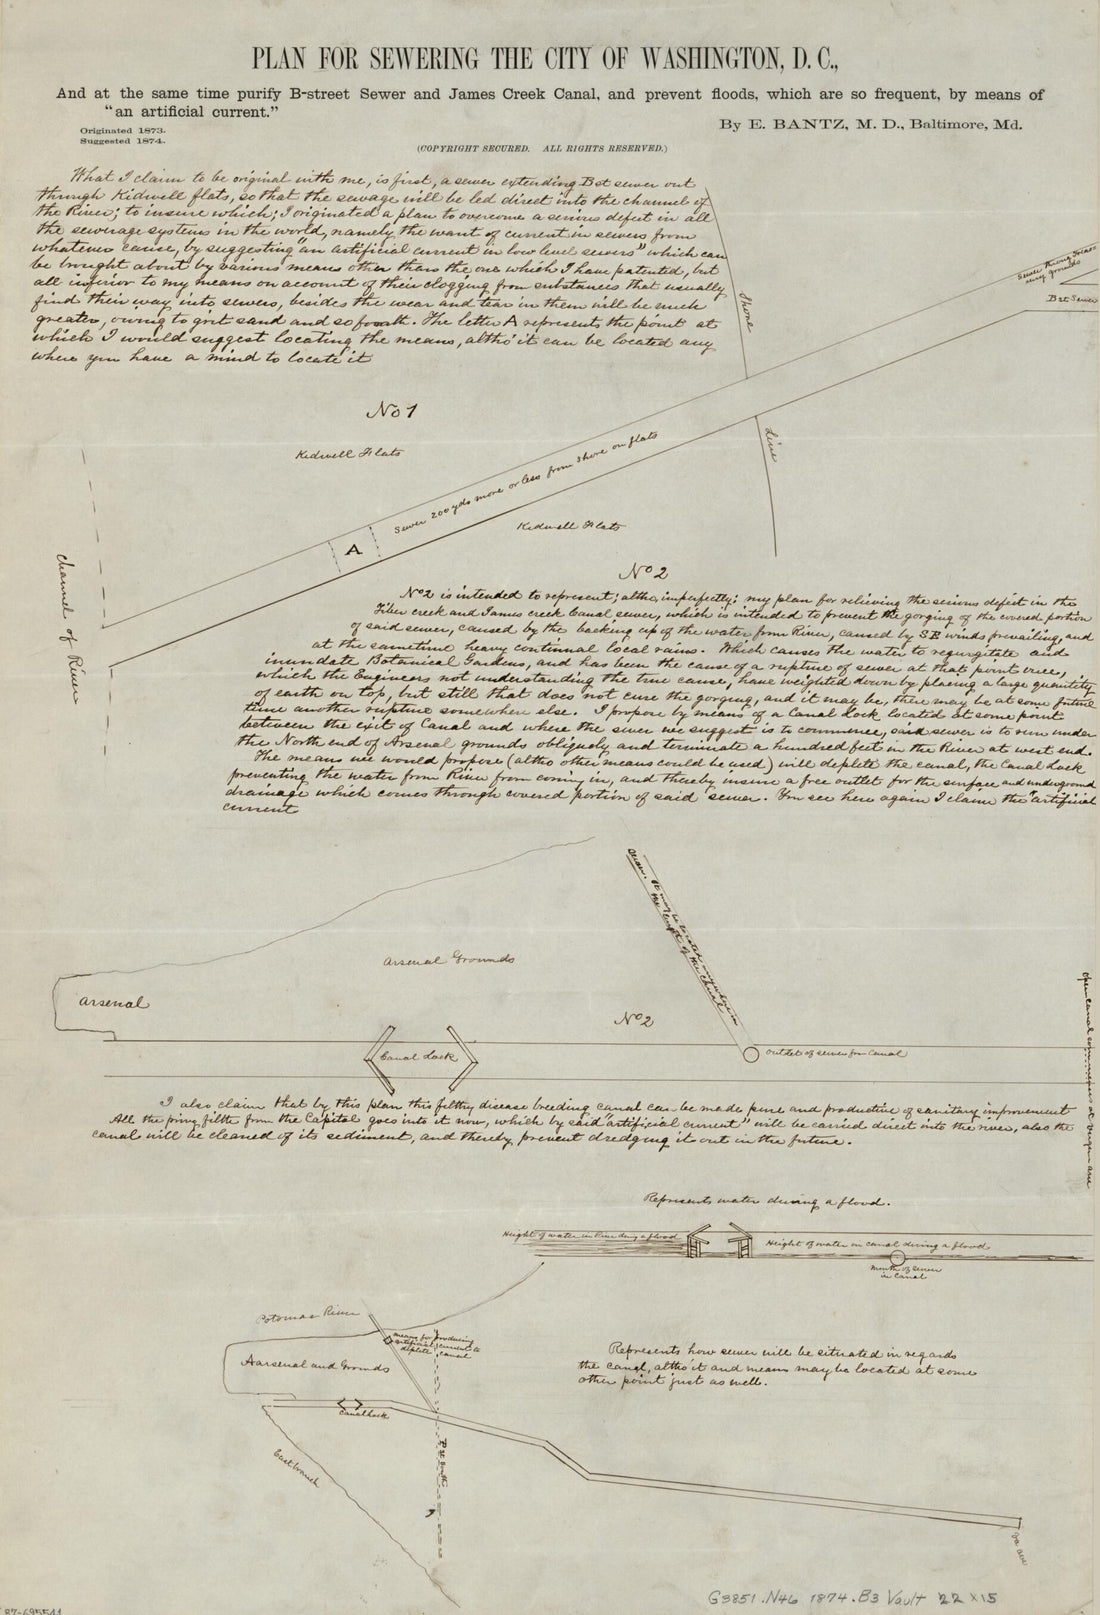 PLAN FOR SEWERING THE CITY OF WASHINGTON, D. C.,
And at the same time purify B-street Sewer and James Creek Canal, and prevent floods, which are so frequent, by means of
"an artificial current."
By E. BANTZ, M. D., Baltimore, Md.
Originated 1873.
Suggested 1874.
(COPYRIGHT SECURED. ALL RIGHTS RESERVED.)
What I claim to be original with me, is first, a sewer extending Bst sewer out
through Kidwell flats, so that the sewage will be led direct into the channel of
the River; to insure which; I originated a plan to overcome a serious defect in all
the sewerage systems in the world, namely the want of current in sewers from
whatever cause, by suggesting "an artificial current in low level sewers" which can
be brought about by various means other than the one which I have patented, but
all inferior to my means on account of their clogging from substances that usually
find their way into sewers, besides the wear and tear in them will be much
greater, owing to grit sand and so forath. The letter A represents the point at
which I would suggest locating the means, altho' it can be located any
where you have a mind to locate it
Shore
Line
Bst Sewer
No 1
Kidwell Flats
Sewer 200 yds more or less from shore on flats
A
Kidwell Flats
Channel of River
No 2
No 2 is intended to represent; altho, imperfectly; my plan for relieving the serious defect in the
Tiber creek and James creek Canal sewer, which is intended to prevent the gorging of the covered portion
of said sewer, caused by the backing up of the water from River, caused by SE winds prevailing, and
at the sametime heavy continual local rains. Which causes the water to regurgitate and
inundate Botanical Gardens, and has been the cause of a rupture of sewer at that point once,
which the Engineers not understanding the true cause, have weighted down by placing a large quantity
of earth on top, but still that does not cure the gorging, and it may be, there may be at some future
time another rupture somewhere else. I propose by means of a Canal Lock located at some point
between the exit of Canal and where the sewer we suggest is to commence, said sewer is to run under
the North end of Arsenal grounds obliquely and terminate a hundred feet in the River at west end.
The means we would propose (altho other means could be used) will deplete the canal, the Canal Lock
preventing the water from River from coming in, and thereby insure a free outlet for the surface and underground
drainage which comes through covered portion of said sewer. You see here again I claim the "artificial
current
Arsenal Grounds
Arsenal
No 2
Canal Lock
Outlet of sewer for Canal
open canal commences at Virgin ave
I also claim that by this plan this filthy disease breeding canal can be made pure and productive of sanitary improvement
All the privy filth from the Capital goes into it now, which by said "artificial current" will be carried direct into the river, also the
canal will be cleaned of its sediment, and thereby prevent dredging it out in the future.
Represents water during a flood.
Height of water in River during a flood
Height of water in canal during a flood
mouth of sewer
in Canal
Potomac River
means for producing
artificial current to
deplete canal
Aarsenal and Grounds
Represents how sewer will be situated in regards
the canal, altho' it and means may be located at some
other point just as well.
Canal lock
East branch
Va ave
G3851 .N46 1874 .B3 Vault 22 x 15
87-695541